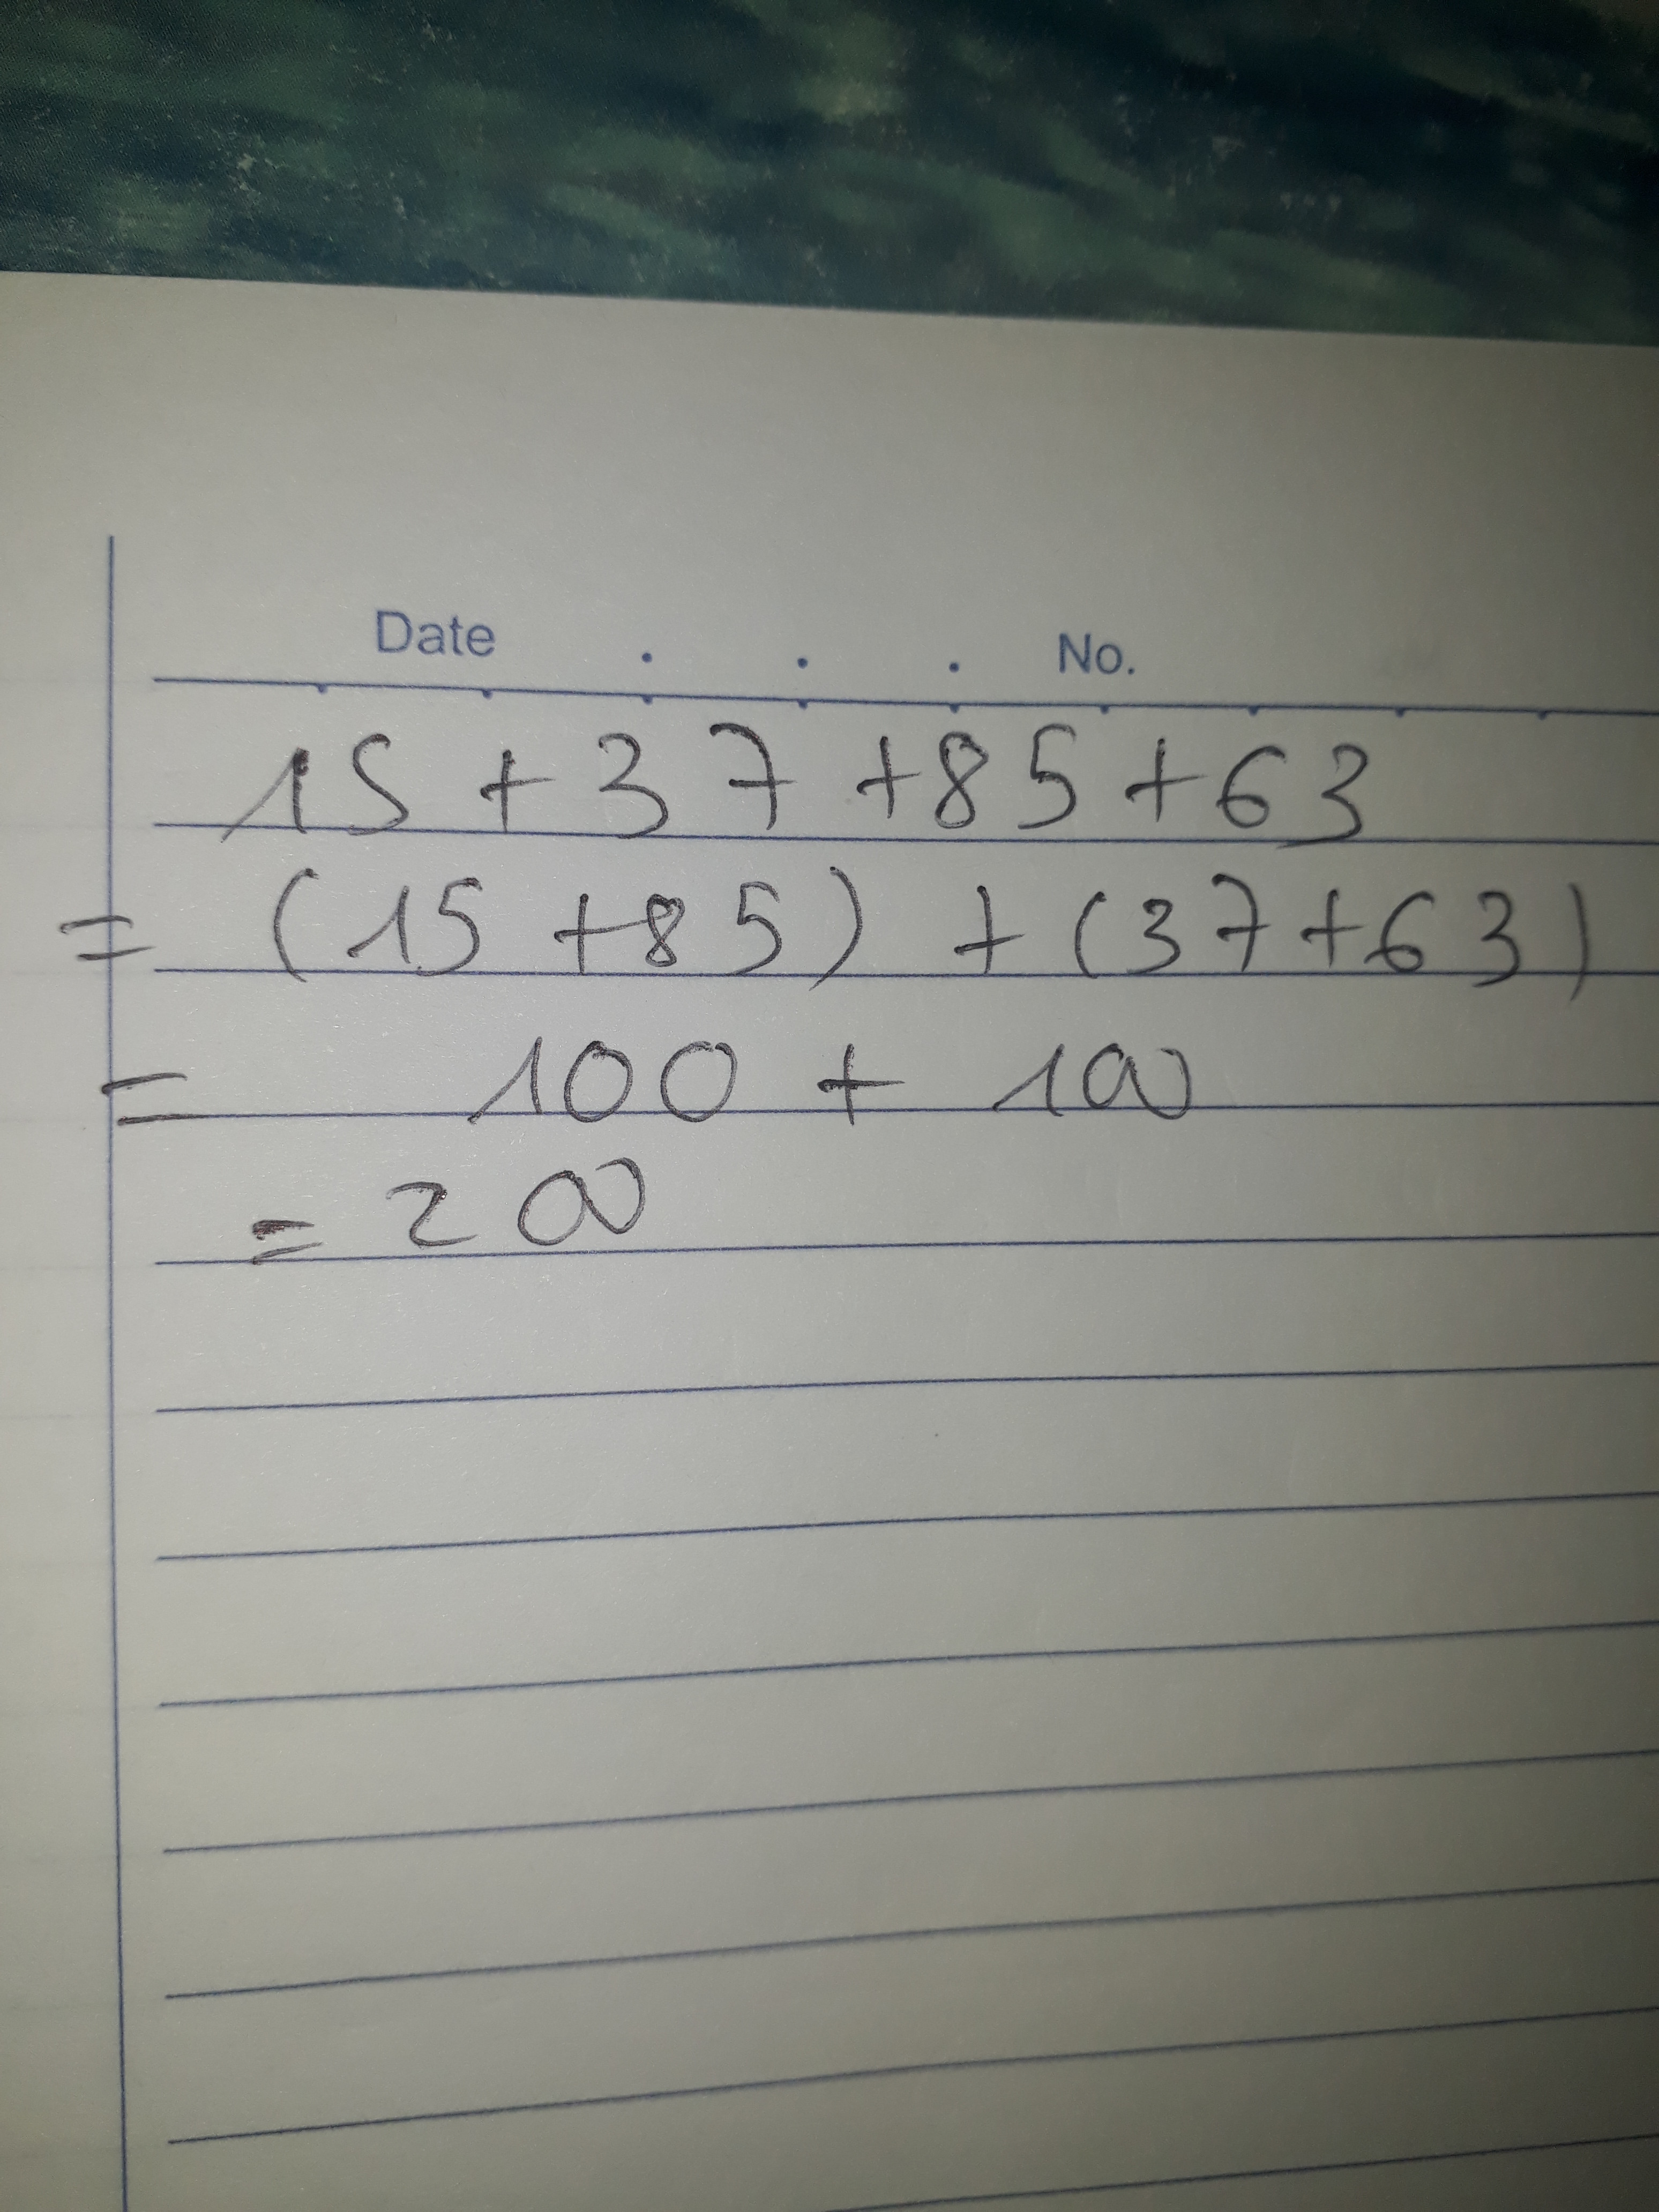 Date . . . No.
15 + 37 + 85 + 63
= (15 + 85) + (37 + 63)
= 100 + 100
= 200